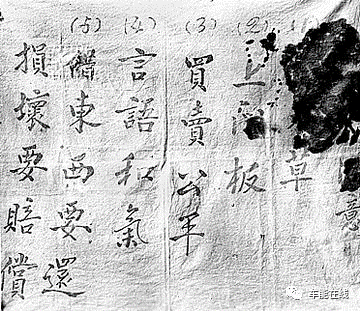 意
草
(2)
上板
(3)
買賣公平
(4)
言語和氣
(5)
借東西要還
損壞要賠償
车能在线